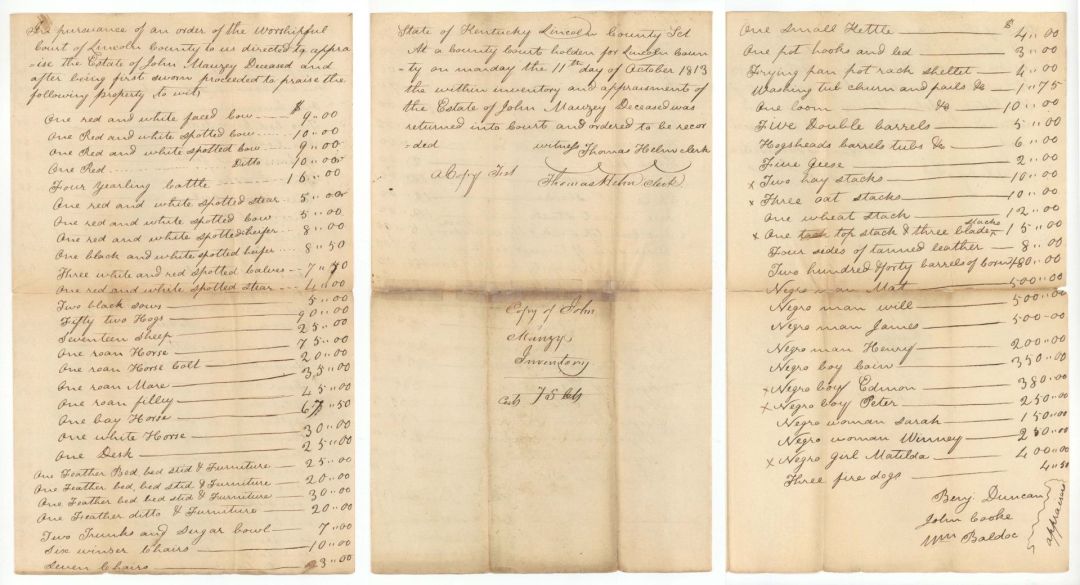 In pursuance of an order of the Worshipful
Court of Lincoln County to us directed to appra
-ise the Estate of John Mauzey Deceased and
after being first sworn proceeded to praise the
following property to wit,
One red and white faced Cow $ 9..00
One Red and white spotted Cow 10..00
One Red and white spotted Cow 9..00
One Red Ditto 10..00
Four Yearling Cattle 16..00
One red and white spotted stear 5..00
One red and white spotted Cow 5..00
One red and white spotted heifer 8..00
One black and white spotted heifer 8..50
Three white and red spotted Calves 7..
One red and white spotted stear 4..00
Two black sows 5..00
Fifty two Hogs 90..00
Seventeen Sheep 25..00
One roan Horse 75..00
One roan Horse Colt 20..00
One roan Mare 35..00
One roan filley 45..00
One bay Horse 67..50
One white Horse 30..00
One Desk 25..00
One Feather Bed bed sted & Furniture 25..00
One Feather bed, bed sted & Furniture 20..00
One Feather bed bed sted & Furniture 30..00
One Feather ditto & Furniture 20..00
Two Trunks and Sugar bowl 7..00
Six winser Chairs 10..00
Seven Chairs 3..00
State of Kentucky Lincoln County Sct
At a County Court holden for Lincoln Coun
-ty on monday the 11th day of October 1813
the within inventory and appraisment of
the Estate of John Mauzey Deceased was
returned into Court and ordered to be recor
-ded witness Thomas Helm clerk
a Copy Test Thomas Helm Clerk
Copy of John
Mauzy
Inventory
75
One Small Kettle $ 4..00
One pot hooks and led 3..00
Frying pan pot rack shellet 4..00
Washing tub churn and pails &c 1..75
One loom &c 10..00
Five Double barrels 5..00
Hogsheads barrels tubs &c 6..00
Five Geese 2..00
x Two hay stacks 10..00
x Three oat stacks 10..00
One wheat stack 12..00
x One top stack & three blade stacks 15..00
Four sides of tanned leather 8..00
Two hundred & forty barrels of Corn 480..00
Negro man Mat 500..00
Negro man will 500..00
Negro man James 500..00
Negro man Henry 200..00
Negro boy Cain 350..00
x Negro boy Edmon 380..00
x Negro boy Peter 250..00
Negro woman Sarah 150..00
Negro woman Winney 250..00
x Negro girl Matilda 400..00
Three fire dogs 4..50
Benj. Duncan
John Cooke
Wm Baldoc
appraisers